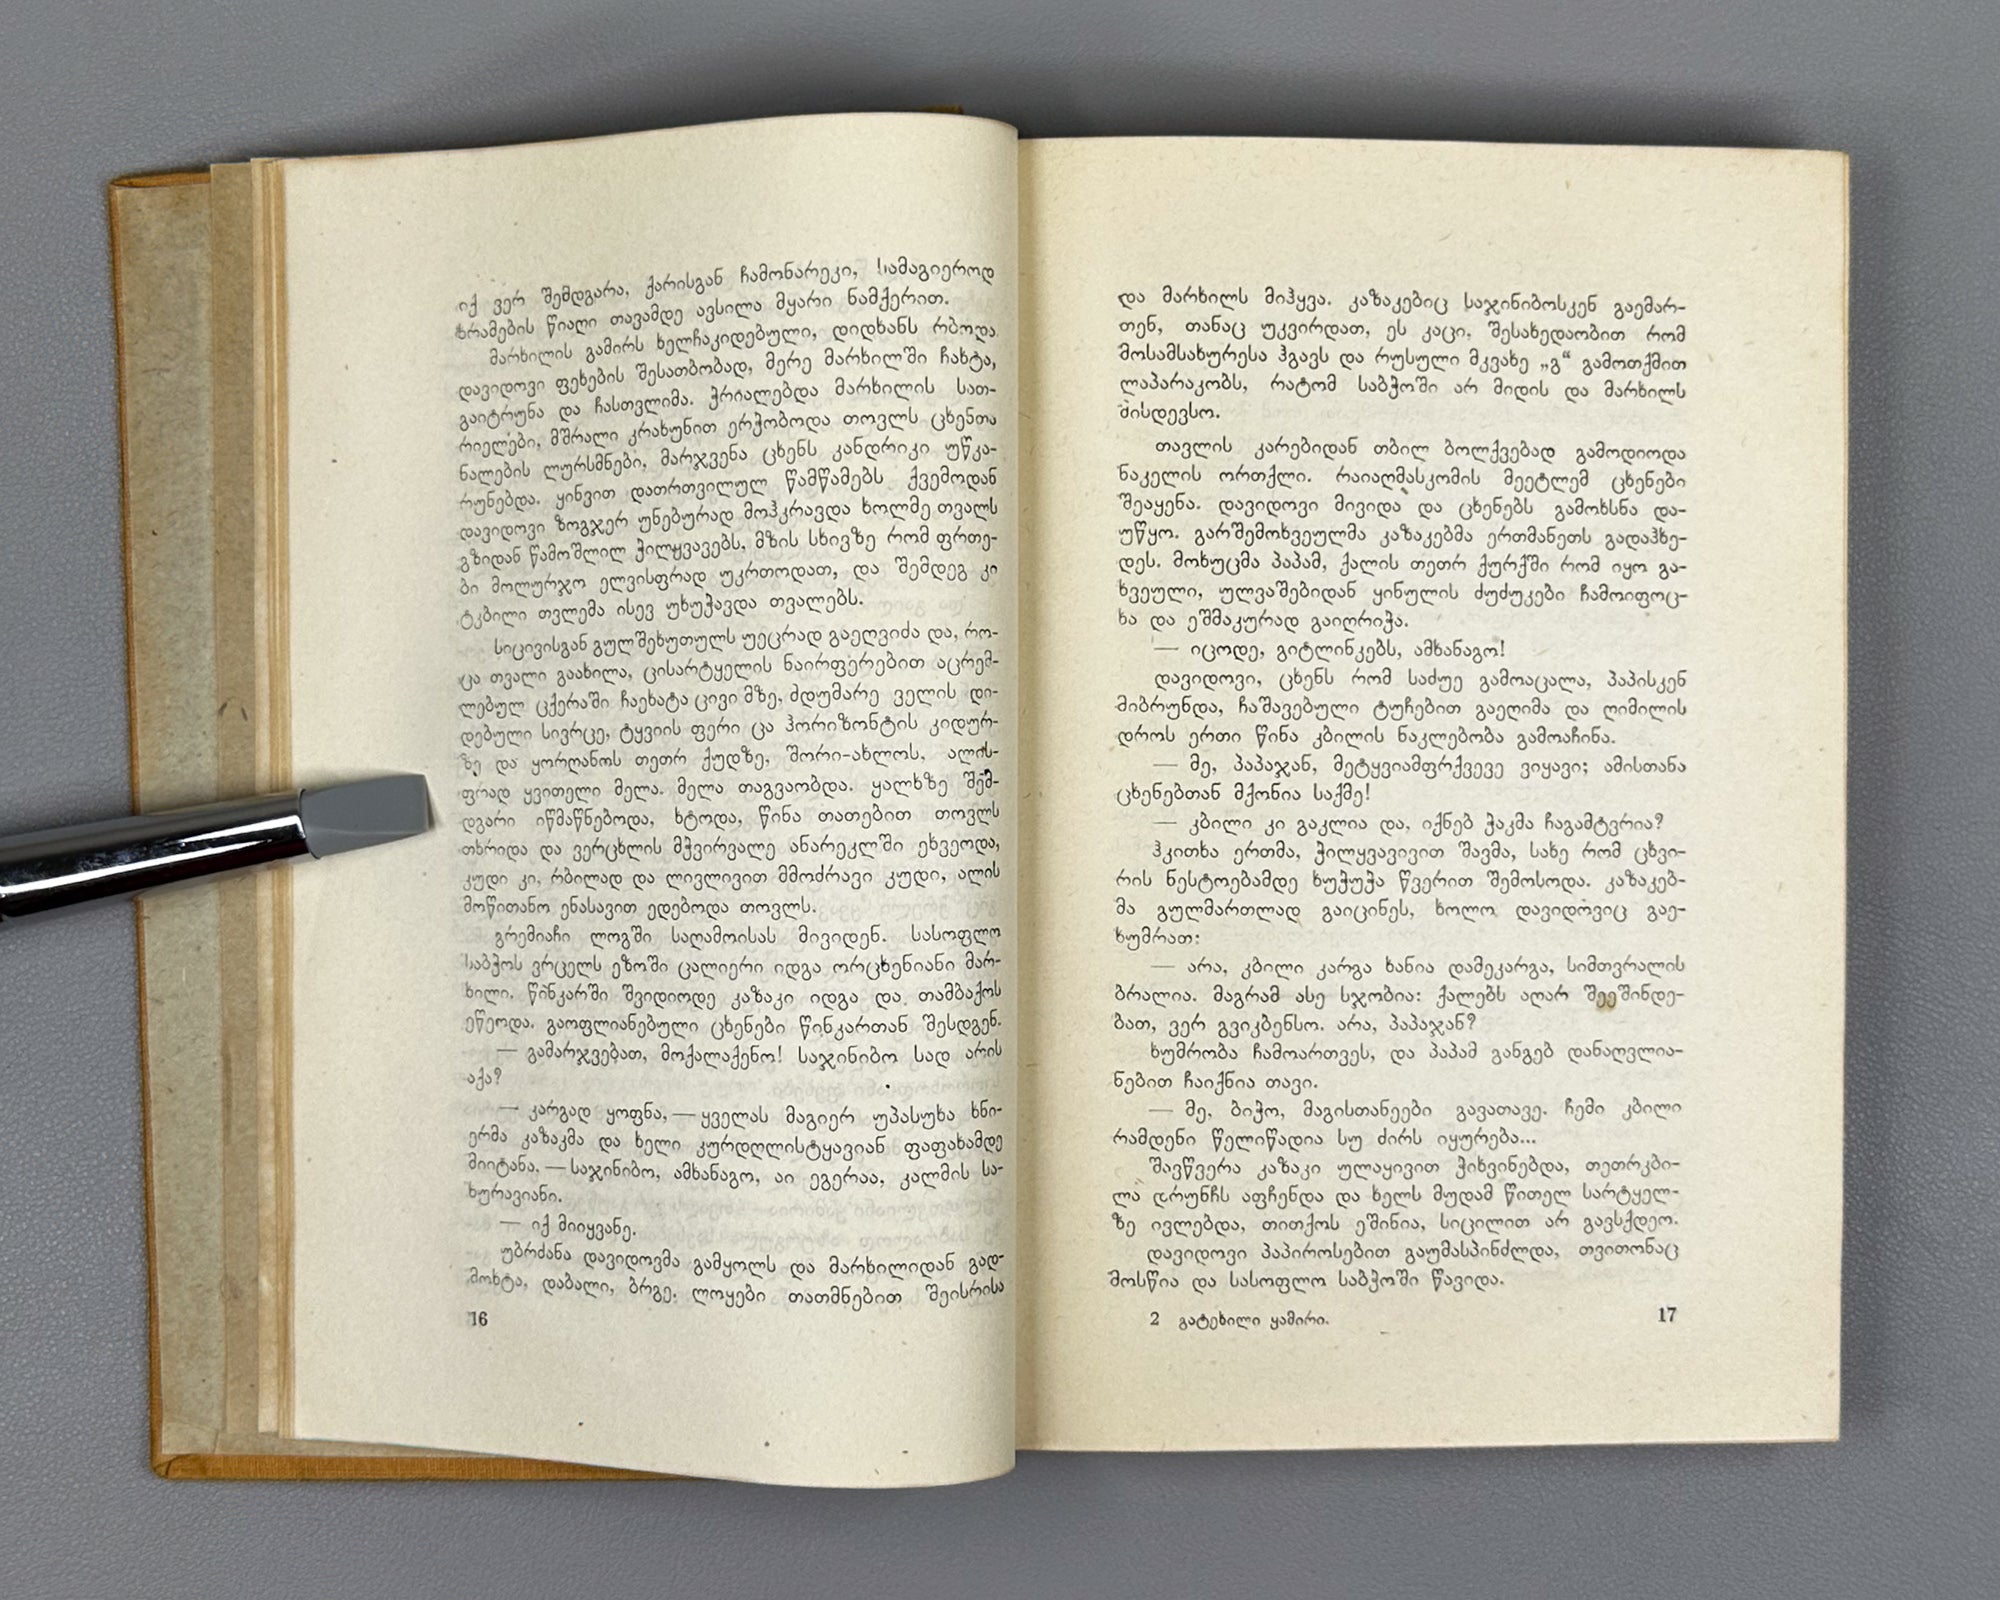 იქ ვერ შემდგარა, ქარისგან ჩამონარეკი, სამაგიეროდ
ხრამების წიაღი თავამდე ავსილა მყარი ნამქერით.
მარხილის გამირს ხელჩაკიდებული, დიდხანს რბოდა
დავიდოვი ფეხების შესათბობად, მერე მარხილში ჩახტა,
გაიტრუნა და ჩასთვლიმა. ჭრიალებდა მარხილის სათ-
რიელები, მშრალი კრახუნით ერჭობოდა თოვლს ცხენთა
ნალების ლურსმნები, მარჯვენა ცხენს კანდრიკი უწკა-
რუნებდა. ყინვით დათრთვილულ წამწამებს ქვემოდან
დავიდოვი ზოგჯერ უნებურად მოჰკრავდა ხოლმე თვალს
გზიდან წამოშლილ ჭილყვავებს, მზის სხივზე რომ ფრთე-
ბი მოლურჯო ელვისფრად უკრთოდათ, და შემდეგ კი
ტკბილი თვლემა ისევ უხუჭავდა თვალებს.
სიცივისგან გულშეხუთულს უეცრად გაეღვიძა და, რო-
ცა თვალი გაახილა, ცისარტყელის ნაირფერებით აცრემ-
ლებულ ცქერაში ჩაეხატა ცივი მზე, ძდუმარე ველის დი-
დებული სივრცე, ტყვიის ფერი ცა ჰორიზონტის კიდურ-
ზე და ყორღანოს თეთრ ქუდზე, შორი-ახლოს, ალის-
ფრად ყვითელი მელა. მელა თაგვაობდა. ყალხზე შემ-
დგარი იწმაწნებოდა, ხტოდა, წინა თათებით თოვლს
თხრიდა და ვერცხლის მჭვირვალე ანარეკლში ეხვეოდა,
კუდი კი, რბილად და ლივლივით მმოძრავი კუდი, ალის
მოწითანო ენასავით ედებოდა თოვლს.
გრემიაჩი ლოგში საღამოისას მივიდენ. სასოფლო
საბჭოს ვრცელს ეზოში ცალიერი იდგა ორცხენიანი მარ-
ხილი. წინკარში შვიდიოდე კაზაკი იდგა და თამბაქოს
ეწეოდა. გაოფლიანებული ცხენები წინკართან შესდგენ.
— გამარჯვებათ, მოქალაქენო! საჯინიბო სად არის
აქა?
— კარგად ყოფნა, — ყველას მაგიერ უპასუხა ხნი-
ერმა კაზაკმა და ხელი კურდღლისტყავიან ფაფახამდე
მიიტანა. — საჯინიბო, ამხანაგო, აი ეგერაა, კალმის სა-
ხურავიანი.
— იქ მიიყვანე.
უბრძანა დავიდოვმა გამყოლს და მარხილიდან გად-
მოხტა, დაბალი, ბრგე. ლოყები თათმნებით შეისრისა
16
და მარხილს მიჰყვა. კაზაკებიც საჯინიბოსკენ გაემარ-
თენ, თანაც უკვირდათ, ეს კაცი, შესახედაობით რომ
მოსამსახურესა ჰგავს და რუსული მკვახე „გ“ გამოთქმით
ლაპარაკობს, რატომ საბჭოში არ მიდის და მარხილს
მისდევსო.
თავლის კარებიდან თბილ ბოლქვებად გამოდიოდა
ნაკელის ორთქლი. რაიაღმასკომის მეეტლემ ცხენები
შეაყენა. დავიდოვი მივიდა და ცხენებს გამოხსნა და-
უწყო. გარშემოხვეულმა კაზაკებმა ერთმანეთს გადაჰხე-
დეს. მოხუცმა პაპამ, ქალის თეთრ ქურქში რომ იყო გა-
ხვეული, ულვაშებიდან ყინულის ძუძუკები ჩამოიფოც-
ხა და ეშმაკურად გაიღრიჭა.
— იცოდე, გიტლინკებს, ამხანაგო!
დავიდოვი, ცხენს რომ საძუე გამოაცალა, პაპისკენ
მიბრუნდა, ჩაშავებული ტუჩებით გაეღიმა და ღიმილის
დროს ერთი წინა კბილის ნაკლებობა გამოაჩინა.
— მე, პაპაჯან, მეტყვიამფრქვევე ვიყავი; ამისთანა
ცხენებთან მქონია საქმე!
— კბილი კი გაკლია და, იქნებ ჭაკმა ჩაგამტვრია?
ჰკითხა ერთმა, ჭილყვავივით შავმა, სახე რომ ცხვი-
რის ნესტოებამდე ხუჭუჭა წვერით შემოსოდა. კაზაკებ-
მა გულმართლად გაიცინეს, ხოლო დავიდოვიც გაე-
ხუმრათ:
— არა, კბილი კარგა ხანია დამეკარგა, სიმთვრალის
ბრალია. მაგრამ ასე სჯობია: ქალებს აღარ შეეშინდე-
ბათ, ვერ გვიკბენსო. არა, პაპაჯან?
ხუმრობა ჩამოართვეს, და პაპამ განგებ დანაღვლია-
ნებით ჩაიქნია თავი.
— მე, ბიჭო, მაგისთანეები გავათავე. ჩემი კბილი
რამდენი წელიწადია სუ ძირს იყურება...
შავწვერა კაზაკი ულაყივით ჭიხვინებდა, თეთრკბი-
ლა დრუნჩს აფჩენდა და ხელს მუდამ წითელ სარტყელ-
ზე ივლებდა, თითქოს ეშინია, სიცილით არ გავსქდეო.
დავიდოვი პაპიროსებით გაუმასპინძლდა, თვითონაც
მოსწია და სასოფლო საბჭოში წავიდა.
2 გატეხილი ყამირი.
17